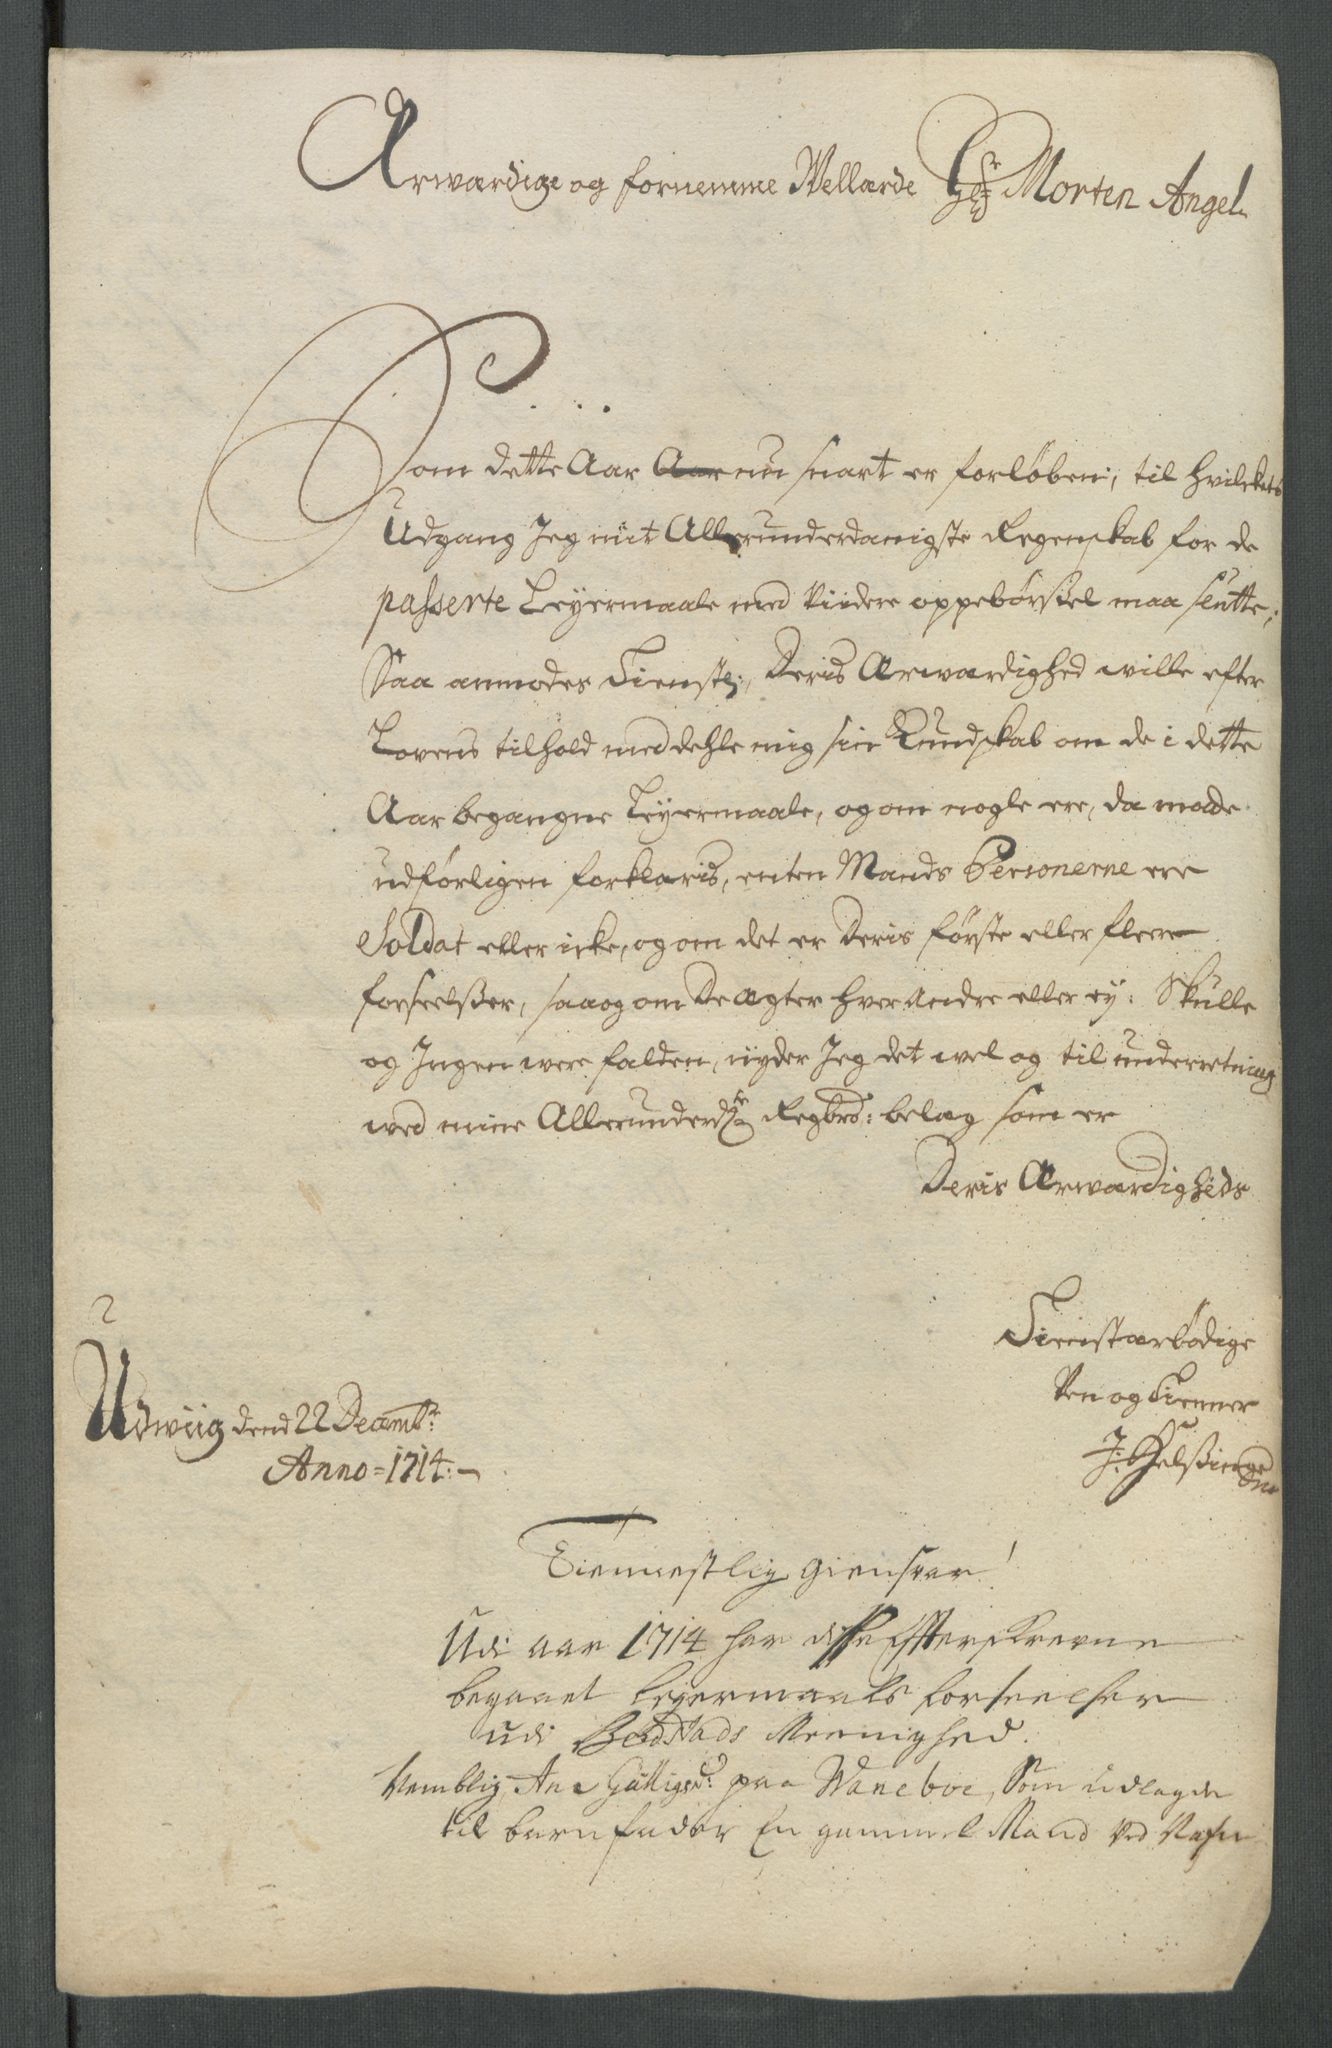 Ærwærdige og fornemme Wellærde Hr: Morten Angel
Som dette Aar Aar nu snart er forløben, til hvilckets
Udgang Jeg mit Allerunderdanigste Regenskab for de
passerte Leyermaale med viidere oppebørssel maa slutte;
Saa anmodes Tienstl:, Deris Ærwærdighed wille efter
Lovens tilhold meddehle mig sin Kundskab om de i dette
Aar begangne Leyermaale, og om nogle ere, da maade
udførligen forklaris, enten Mands Personerne ere
Soldat eller icke, og om det er Deris første eller flere
forseelsser, saa og om De ægter hverandre eller ey: Skulle
og Jngen were falden, nyder Jeg det wel og til underretning
wed mine Allerunderdgste Regbrs: belæg som er
Deris Ærwærdigheds
Tienstærbødige
Ven og Tienner
J: Helssing
Udwiig dend 22 Decembr:
Anno = 1714: -
Tiennestlig giensvar!
Udi aar 1714 har disse Efterskrevne
begaaet leyermaals forseelser
udi Meenighed.
Nemblig, Ane Gulligsd: paa Waneboe, Som udlagde
til barnfader En gammel Mand ved Nafn